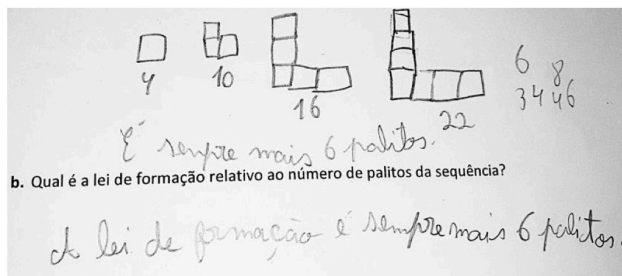 4 10 16 22
6 8
34 46
É sempre mais 6 palitos.
b. Qual é a lei de formação relativo ao número de palitos da sequência?
A lei de formação é sempre mais 6 palitos.